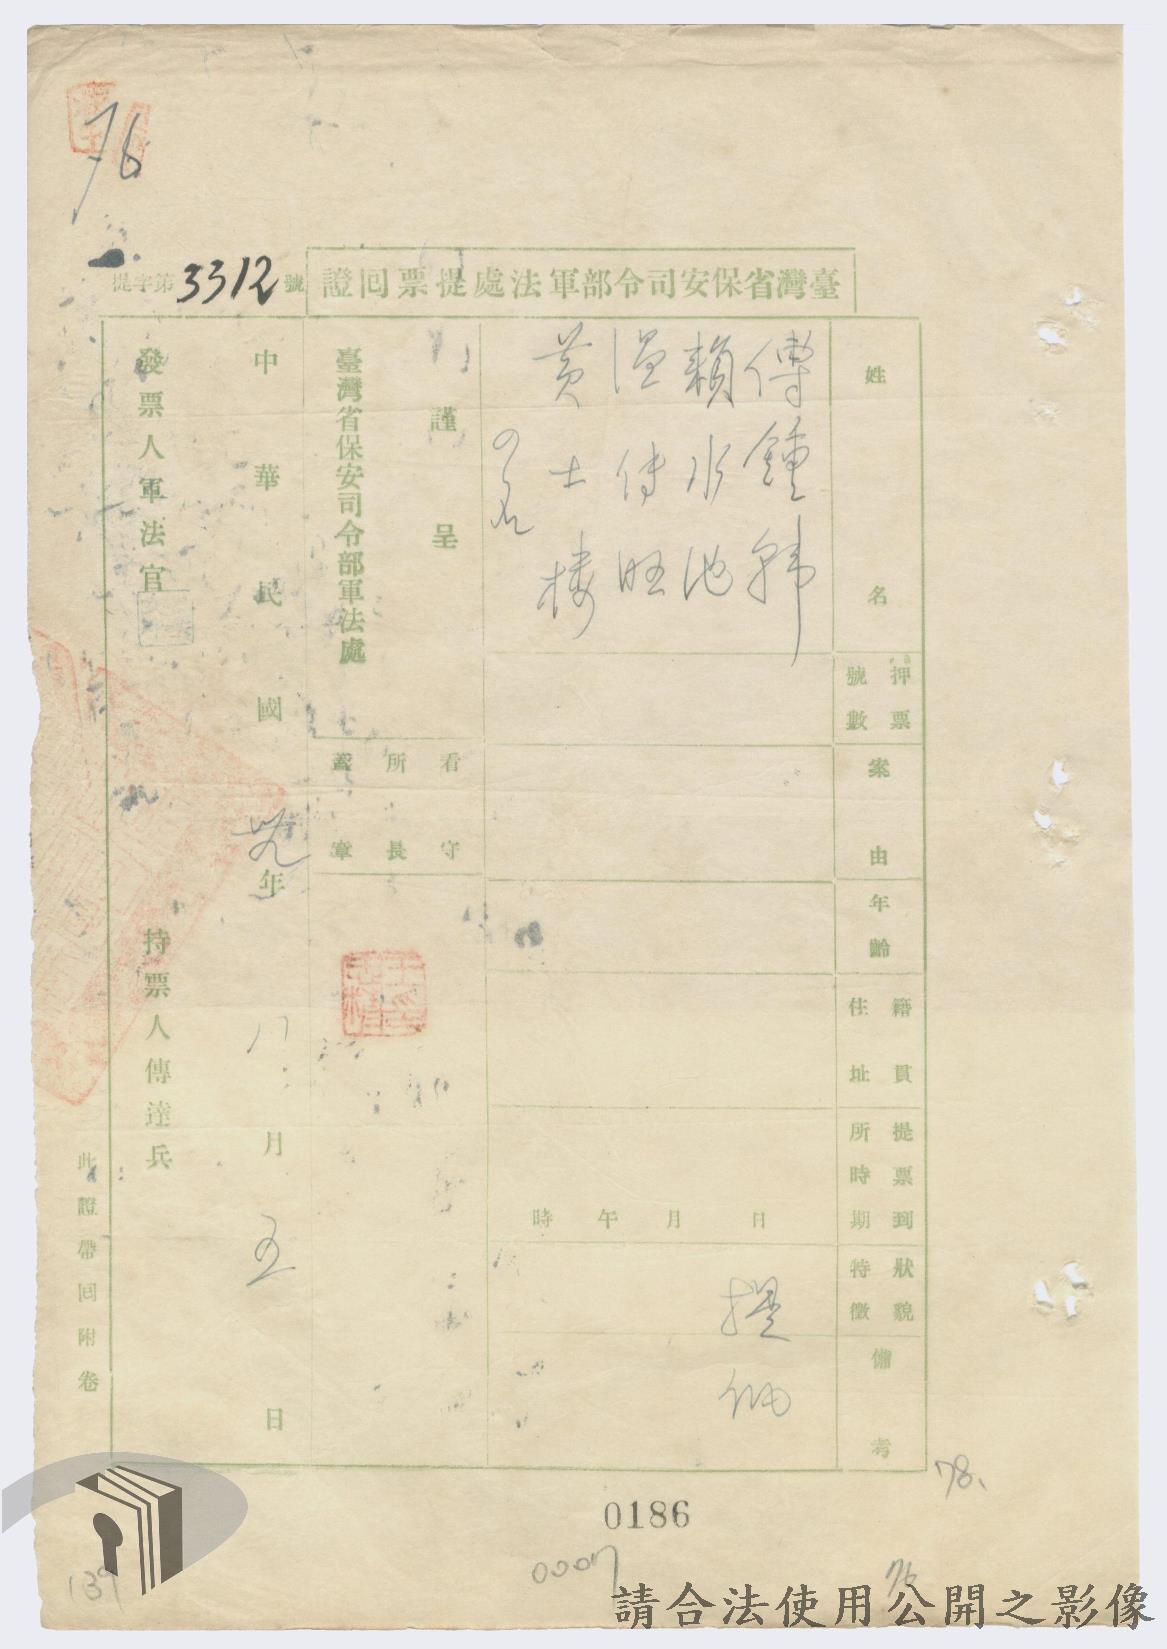 76
臺灣省保安司令部軍法處提票回證
提字第3312號
姓名
押票號數
案由
年齡
籍貫住址
提票到所時期
狀貌特徵
備考
傅鍾
賴水池
溫傳旺
黃士樓
日
月
午
時
提
謹呈
臺灣省保安司令部軍法處
看守所長蓋章
中華民國卅九年八月五日
發票人軍法官
持票人傳達兵
此證帶回附卷
78.
0186
0007
76
139
請合法使用公開之影像